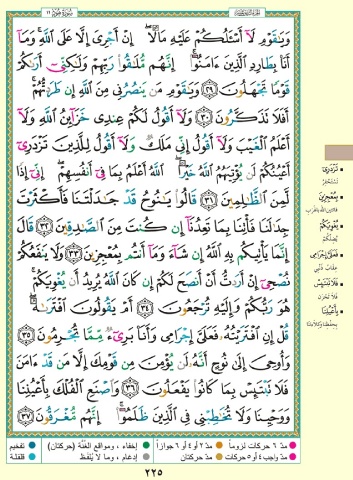 سورة هود ١١
الجزء الثاني عشر
وَيَٰقَوْمِ لَآ أَسْـَٔلُكُمْ عَلَيْهِ مَالًا ۖ إِنْ أَجْرِىَ إِلَّا عَلَى ٱللَّهِ ۚ وَمَآ
أَنَا۠ بِطَارِدِ ٱلَّذِينَ ءَامَنُوٓا۟ ۚ إِنَّهُم مُّلَٰقُوا۟ رَبِّهِمْ وَلَٰكِنِّىٓ أَرَىٰكُمْ
قَوْمًا تَجْهَلُونَ ٢٩ وَيَٰقَوْمِ مَن يَنصُرُنِى مِنَ ٱللَّهِ إِن طَرَدتُّهُمْ ۚ
أَفَلَا تَذَكَّرُونَ ٣٠ وَلَآ أَقُولُ لَكُمْ عِندِى خَزَآئِنُ ٱللَّهِ وَلَآ
أَعْلَمُ ٱلْغَيْبَ وَلَآ أَقُولُ إِنِّى مَلَكٌ وَلَآ أَقُولُ لِلَّذِينَ تَزْدَرِىٓ
أَعْيُنُكُمْ لَن يُؤْتِيَهُمُ ٱللَّهُ خَيْرًا ۖ ٱللَّهُ أَعْلَمُ بِمَا فِىٓ أَنفُسِهِمْ ۖ إِنِّىٓ إِذًا
لَّمِنَ ٱلظَّٰلِمِينَ ٣١ قَالُوا۟ يَٰنُوحُ قَدْ جَٰدَلْتَنَا فَأَكْثَرْتَ
جِدَٰلَنَا فَأْتِنَا بِمَا تَعِدُنَآ إِن كُنتَ مِنَ ٱلصَّٰدِقِينَ ٣٢ قَالَ
إِنَّمَا يَأْتِيكُم بِهِ ٱللَّهُ إِن شَآءَ وَمَآ أَنتُم بِمُعْجِزِينَ ٣٣ وَلَا يَنفَعُكُمْ
نُصْحِىٓ إِنْ أَرَدتُّ أَنْ أَنصَحَ لَكُمْ إِن كَانَ ٱللَّهُ يُرِيدُ أَن يُغْوِيَكُمْ ۚ
هُوَ رَبُّكُمْ وَإِلَيْهِ تُرْجَعُونَ ٣٤ أَمْ يَقُولُونَ ٱفْتَرَىٰهُ ۖ
قُلْ إِنِ ٱفْتَرَيْتُهُۥ فَعَلَىَّ إِجْرَامِى وَأَنَا۠ بَرِىٓءٌ مِّمَّا تُجْرِمُونَ ٣٥
وَأُوحِىَ إِلَىٰ نُوحٍ أَنَّهُۥ لَن يُؤْمِنَ مِن قَوْمِكَ إِلَّا مَن قَدْ ءَامَنَ
فَلَا تَبْتَئِسْ بِمَا كَانُوا۟ يَفْعَلُونَ ٣٦ وَٱصْنَعِ ٱلْفُلْكَ بِأَعْيُنِنَا
وَوَحْيِنَا وَلَا تُخَٰطِبْنِى فِى ٱلَّذِينَ ظَلَمُوٓا۟ ۚ إِنَّهُم مُّغْرَقُونَ ٣٧
تَزْدَرِي
تَسْتَحْقِر
بِمُعْجِزِينَ
فائتين الله بالهرب
يُغْوِيَكُمْ
يُضِلَّكُمْ
فَعَلَيَّ إِجْرَامِي
عقاب ذنبي
فَلَا تَبْتَئِسْ
فلا تحزن
بِأَعْيُنِنَا
بحفظنا وكلاءتنا
مدّ ٦ حركات لزوماً
مدّ ٢ أو ٤ أو ٦ جوازاً
إخفاء، ومواقع الغُنَّة (حركتان)
تفخيم
مدّ واجب ٤ أو ٥ حركات
مدّ حركتان
إدغام، وما لا يُلفَظ
قلقلة
٢٢٥